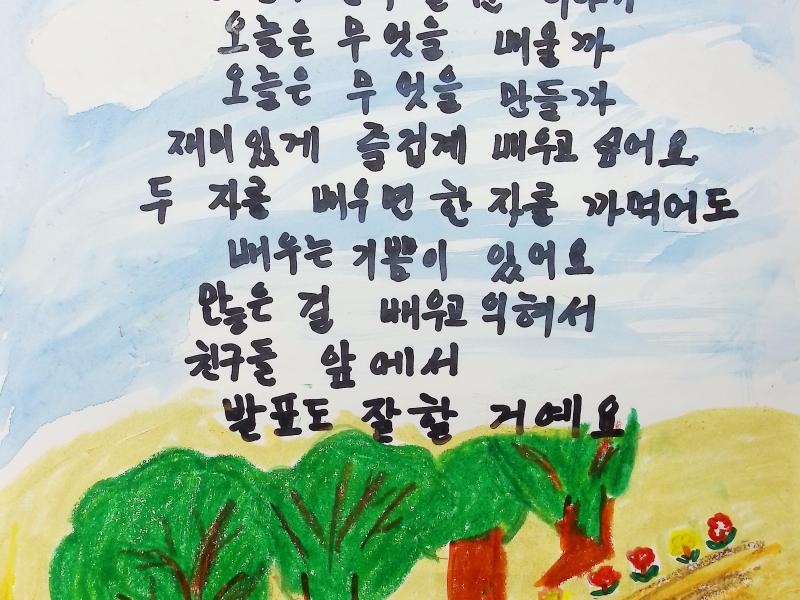 오늘은 무엇을 배울까
오늘은 무엇을 만들까
재미있게 즐겁게 배우고 싶어요
두 자를 배우면 한 자를 까먹어도
배우는 기쁨이 있어요
많은 걸 배우고 익혀서
친구들 앞에서
발표도 잘할 거예요